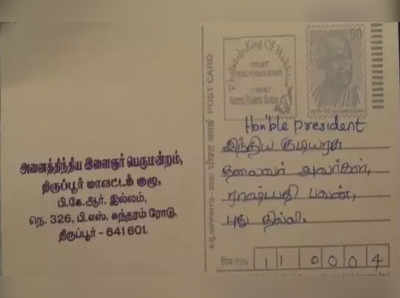 அனைத்திந்திய இளைஞர் பெருமன்றம்,
திருப்பூர் மாவட்டக் குழு,
பி.கே.ஆர். இல்லம்,
நெ. 326, பி.எஸ். சுந்தரம் ரோடு,
திருப்பூர் - 641601.
POST CARD
50
Hon'ble President
இந்திய குடியரசு
தலைவர் அவர்கள்,
ராஷ்டிரபதி பவன்,
புது தில்லி.
PIN
110004